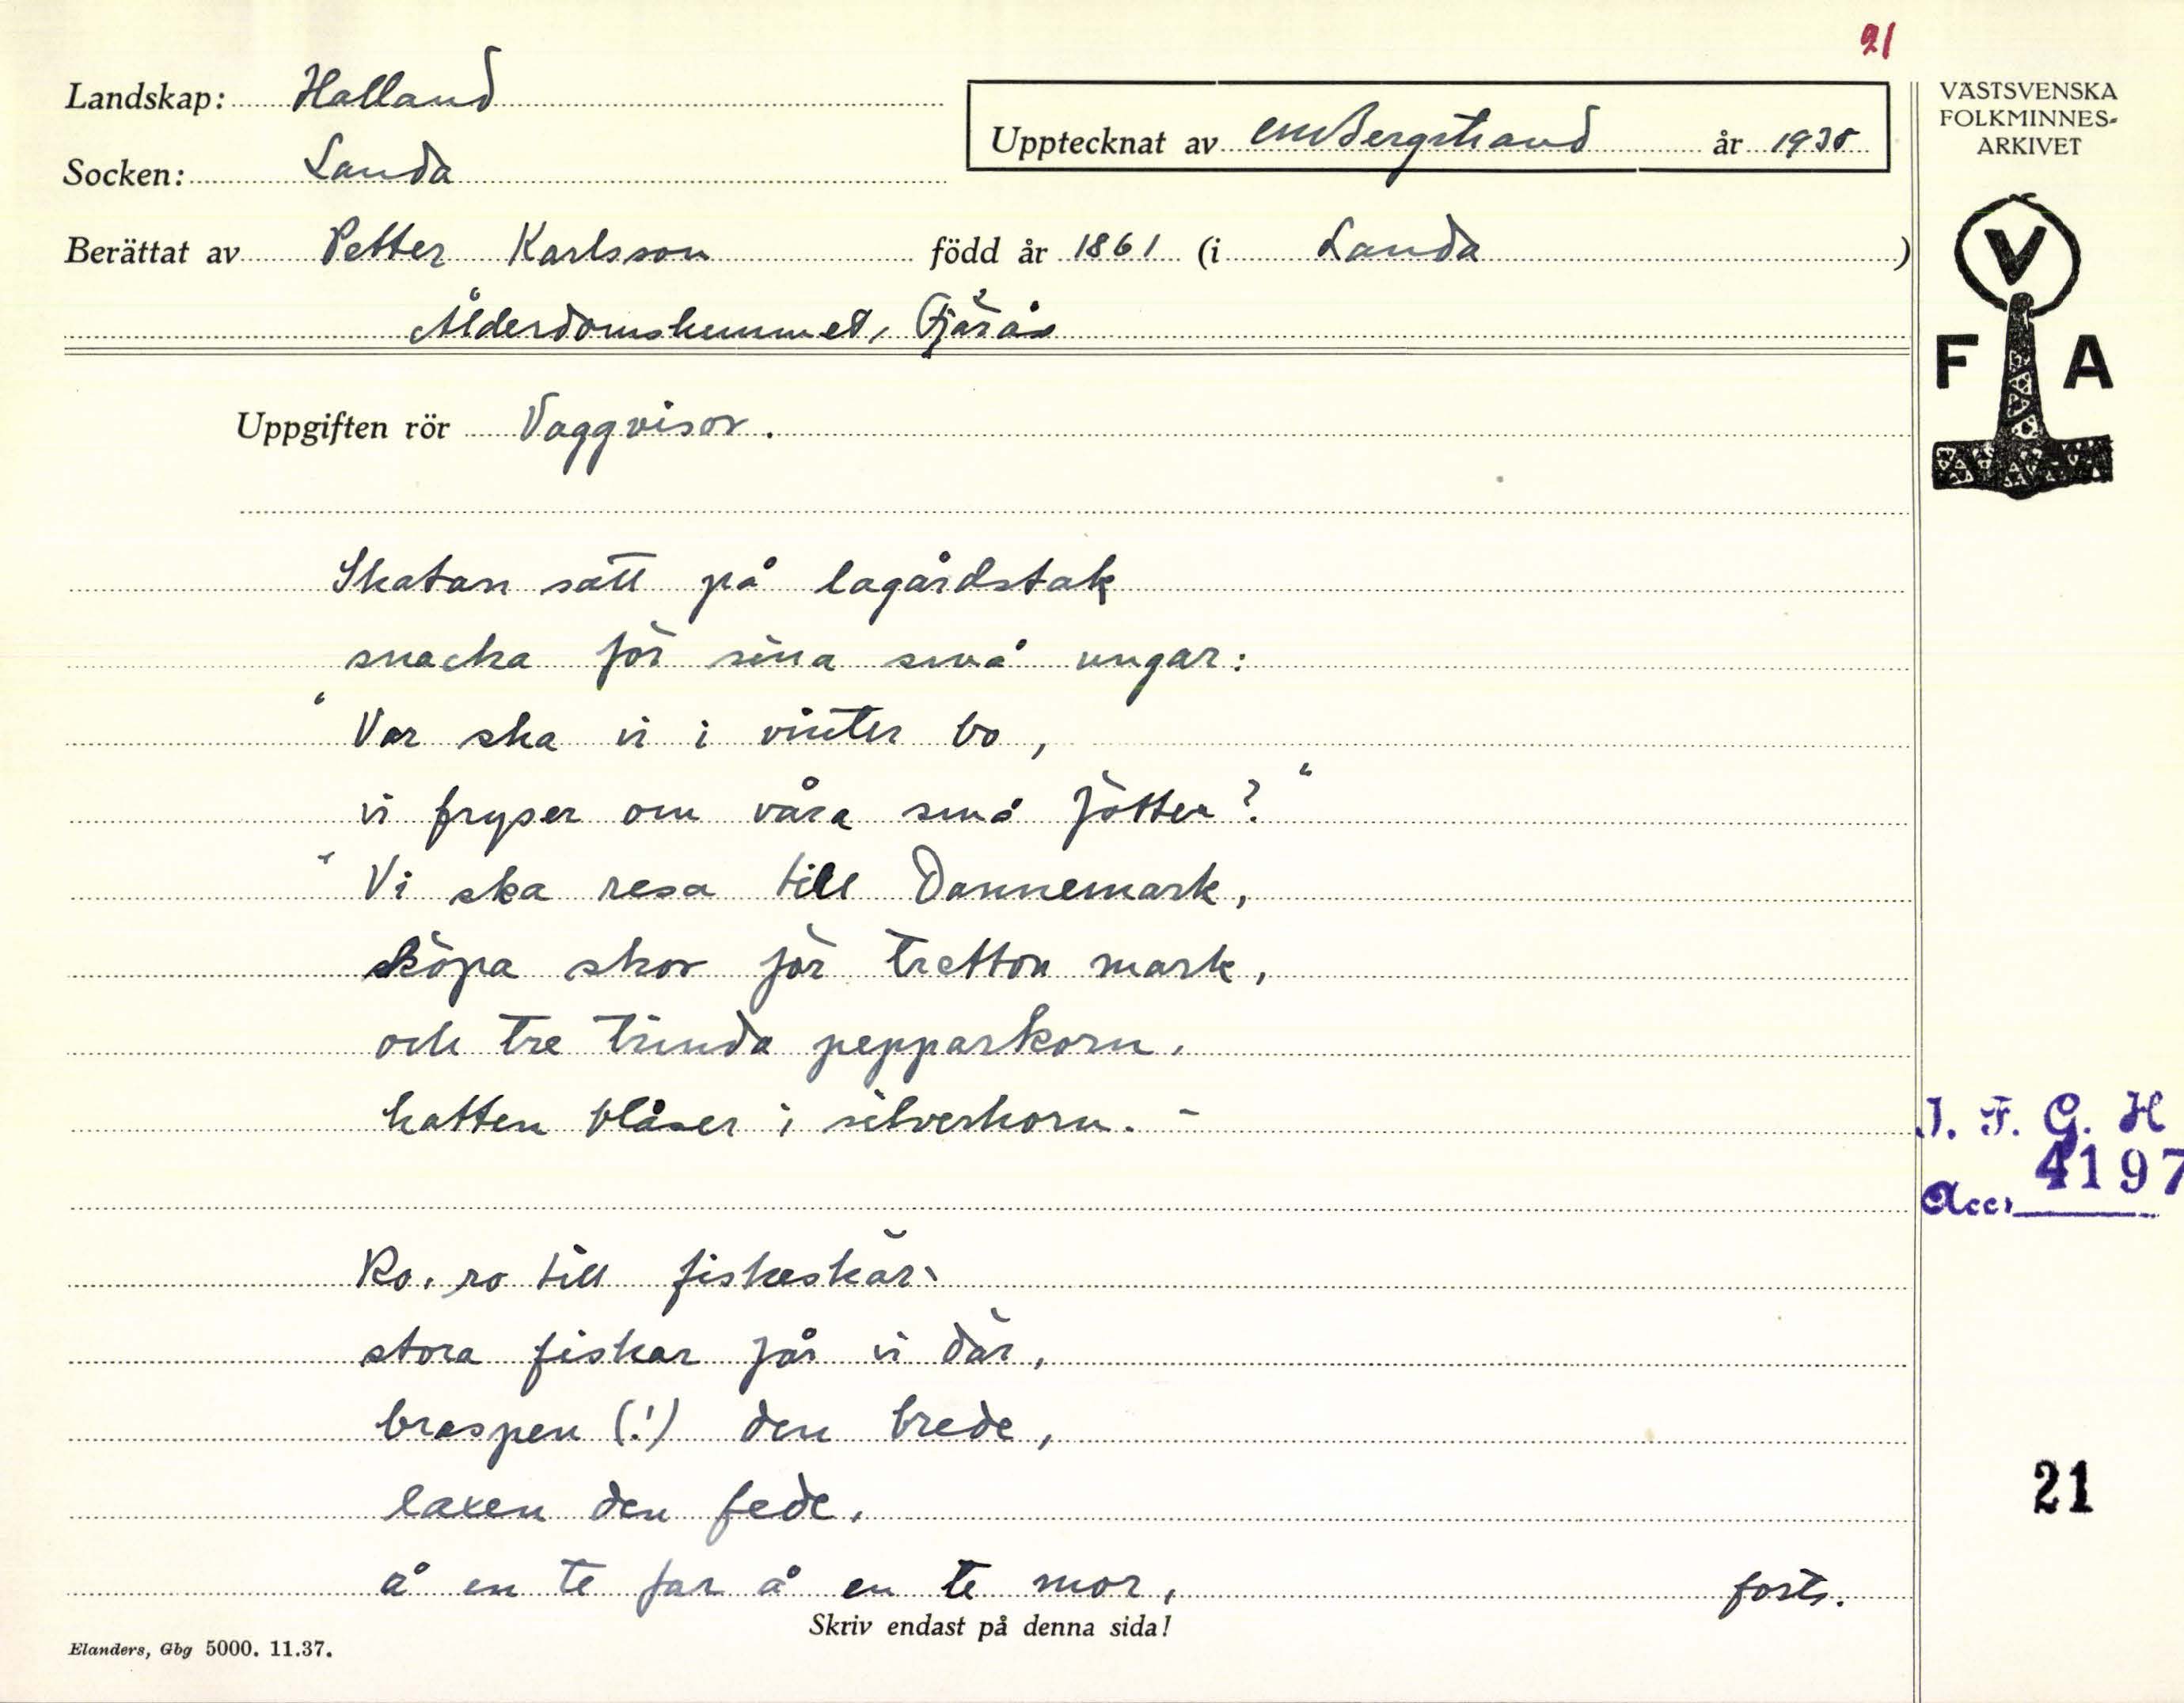 21
Landskap: Halland
Upptecknat av CMBergstrand år 1938
VÄSTSVENSKA
FOLKMINNES-
ARKIVET
Socken: Landa
Berättat av Petter Karlsson född år 1861 (i Landa)
Ålderdomshemmet, Fjärås
V
F A
Uppgiften rör Vaggvisor.
Skatan satt på lagårdstak
snacka för sina små ungar:
"Var ska vi i vinter bo,
vi fryser om våra små fötter?"
"Vi ska resa till Dannemark,
köpa skor för tretton mark,
och tre trinda pepparkorn.
katten blåser i silverhorn. -
J. F. G. H
4197
Acc.
Ro, ro till fiskeskär
stora fiskar får vi där,
braspen (!) den brede,
laxen den fede,
21
å en te far å en te mor, forts.
Skriv endast på denna sida!
Elanders, Gbg 5000. 11.37.